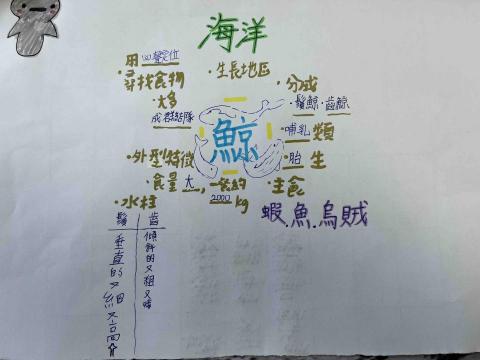 海洋
用回聲定位
·尋找食物
·生長地區
·分成
鬚鯨·齒鯨
·大多
成群結隊
鯨
哺乳類
·外型特徵
·胎生
·食量大,一餐約2000kg
·主食
蝦.魚.烏賊
·水柱
鬚
齒
垂直的又細又高
傾斜的又粗又矮